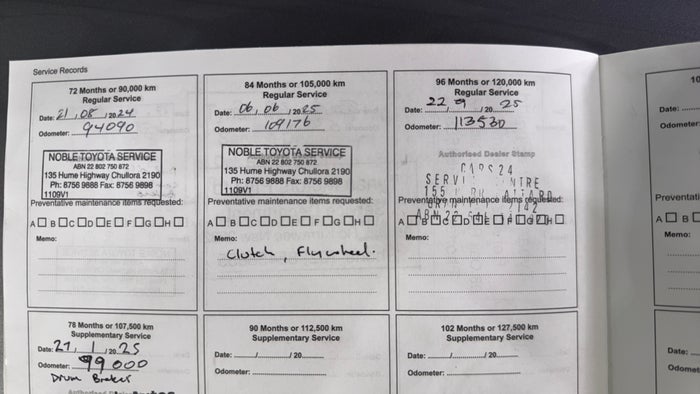 Service Records
72 Months or 90,000 km
Regular Service
Date: 21, 08, 2024
Odometer: 94090
NOBLE TOYOTA SERVICE
ABN 22 802 750 872
135 Hume Highway Chullora 2190
Ph: 8756 9888 Fax: 8756 9898
1109V1
Preventative maintenance items requested:
A☐ B☐ C☐ D☐ E☐ F☐ G☐ H☐
Memo:
78 Months or 107,500 km
Supplementary Service
Date: 27, 1, 2025
Odometer: 99000
Drum Brakes
84 Months or 105,000 km
Regular Service
Date: 06, 06, 2025
Odometer: 109176
NOBLE TOYOTA SERVICE
ABN 22 802 750 872
135 Hume Highway Chullora 2190
Ph: 8756 9888 Fax: 8756 9898
1109V1
Preventative maintenance items requested:
A☐ B☐ C☐ D☐ E☐ F☐ G☐ H☐
Memo:
Clutch, Flywheel.
90 Months or 112,500 km
Supplementary Service
Date: / /20
Odometer:
96 Months or 120,000 km
Regular Service
Date: 22 / 9 /20 25
Odometer: 113530
Authorised Dealer Stamp
CARS 24
155
Preventative maintenance items requested:
A☐ B☐ C☐ D☐ E☐ F☐ G☐ H☐
Memo:
102 Months or 127,500 km
Supplementary Service
Date: / /20
Odometer:
10
Date:
Odometer
Preventati
A☐ B
Memo:
Date:
Odomet